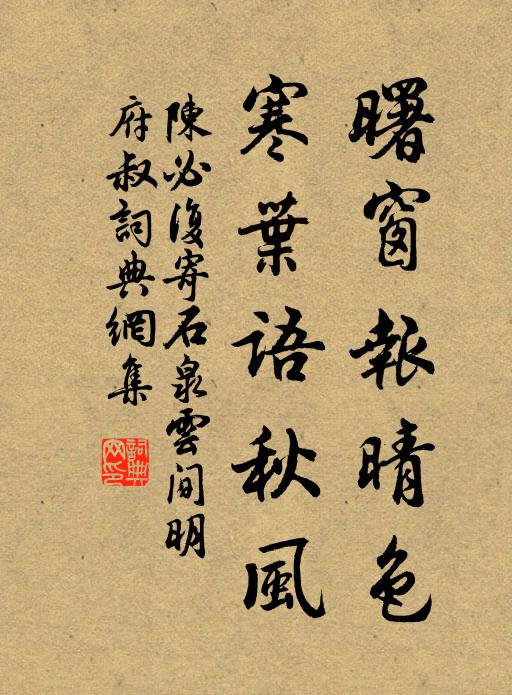 曙窗報晴色
寒葉語秋風
陳必復寄石泉雲間明
府叔詞典網集
詞典
网印